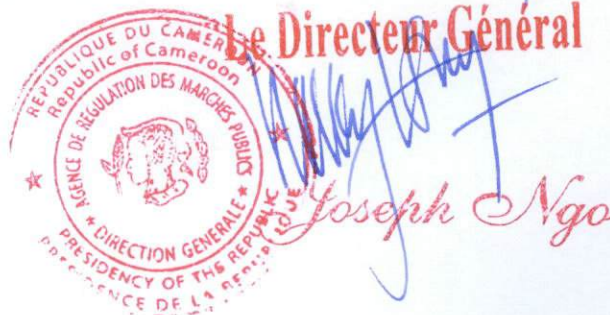 Le Directeur Général
RÉPUBLIQUE DU CAMEROUN
Republic of Cameroon
AGENCE DE REGULATION DES MARCHES PUBLICS
★ DIRECTION GENERALE ★
PRESIDENCY OF THE REPUBLIC
PRESIDENCE DE LA REPUBLIQUE
Joseph Ngo